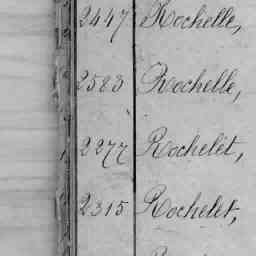 2447 Rochelle,
2583 Rochelle,
2277 Rochelet,
2315 Rochelet,